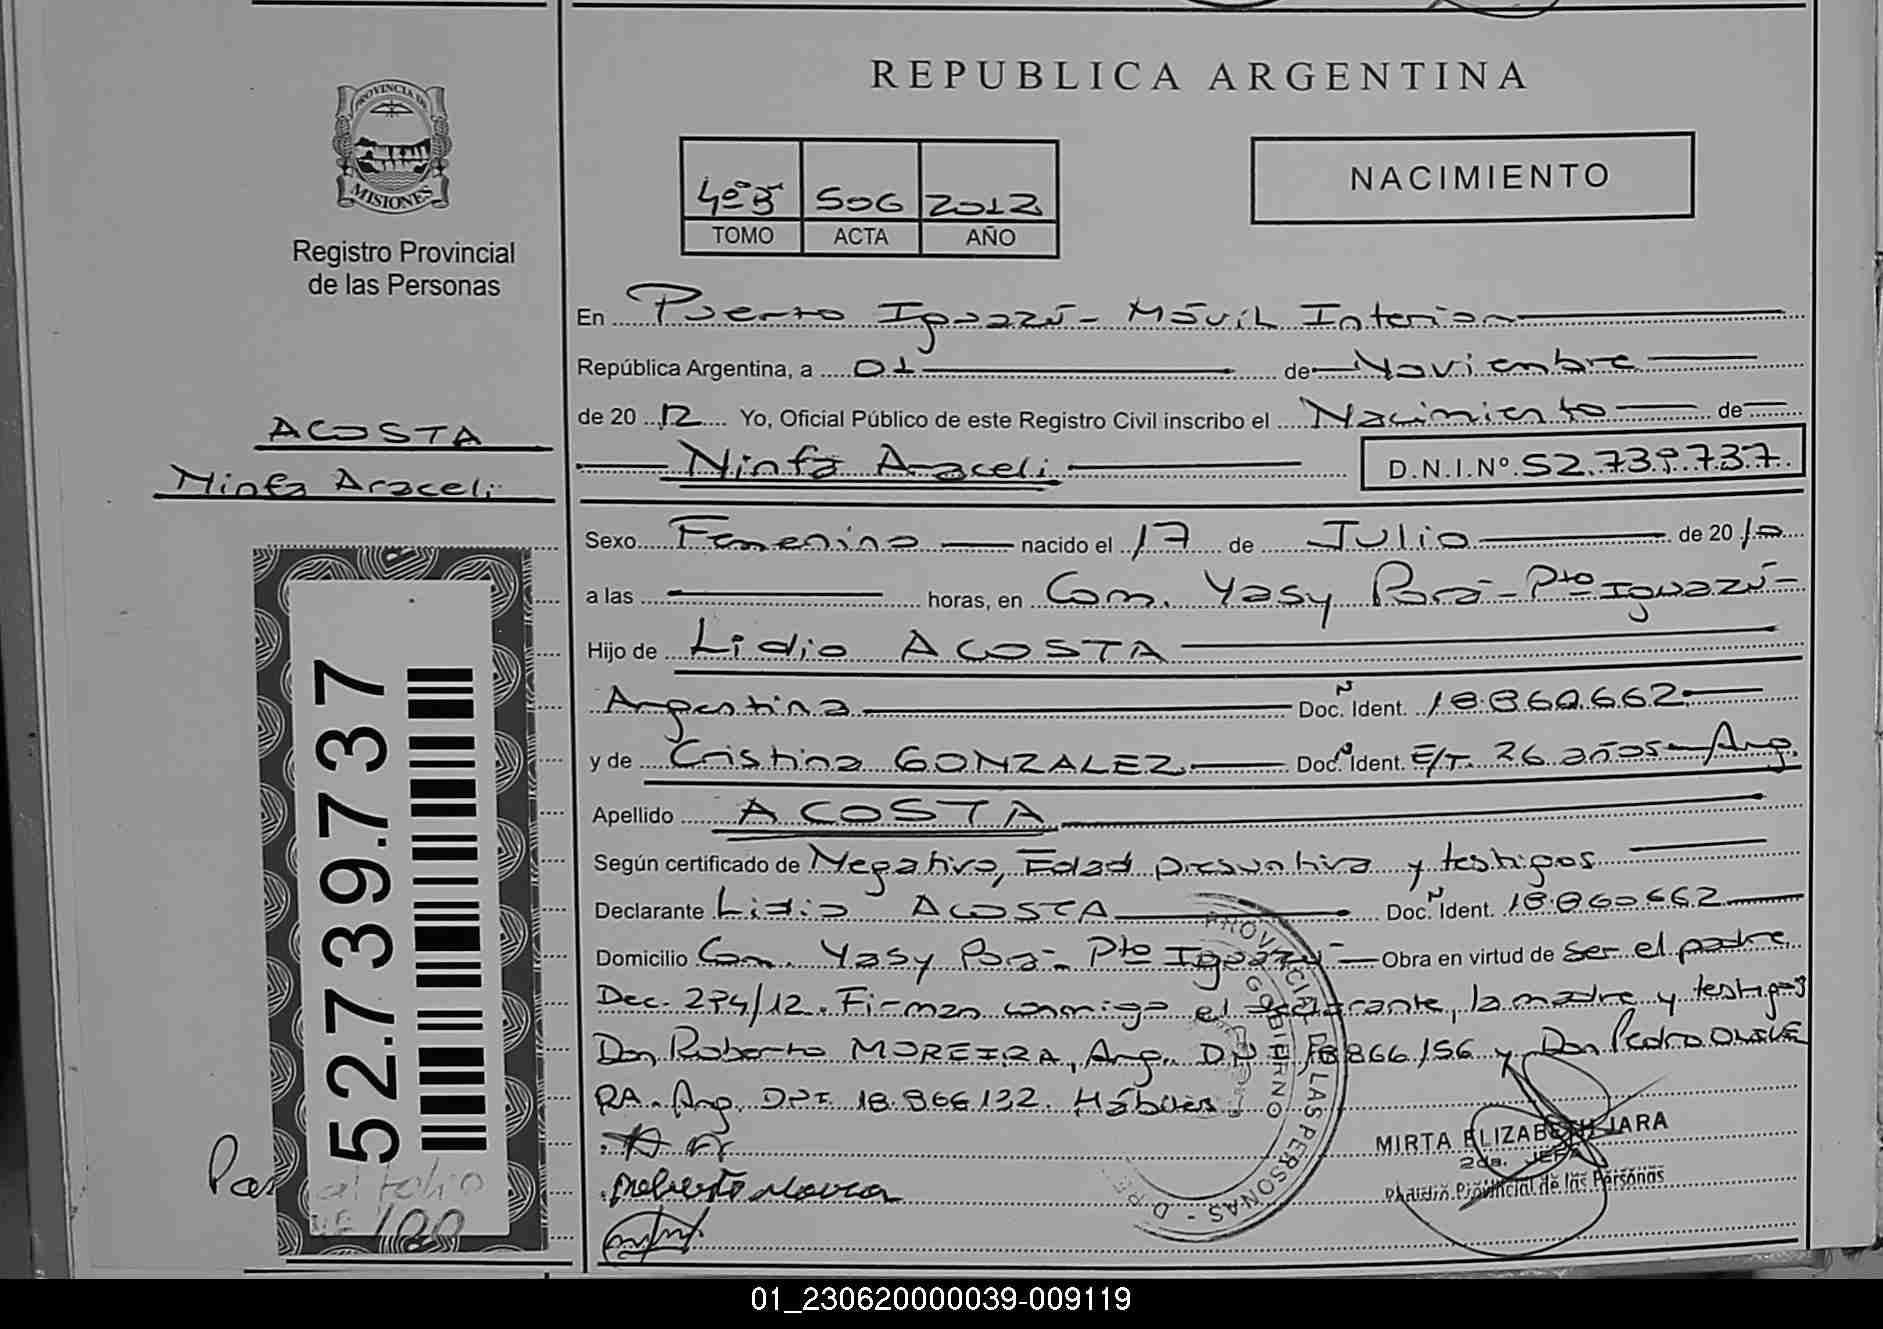 REPUBLICA ARGENTINA
PROVINCIA DE
MISIONES
Registro Provincial
de las Personas
4º B 506 2012
TOMO ACTA AÑO
NACIMIENTO
En Puerto Iguazú - Móvil Interior
República Argentina, a 01 de Noviembre
de 20 12 Yo, Oficial Público de este Registro Civil inscribo el Nacimiento de
Ninfa Araceli D.N.I.Nº 52.739.737
ACOSTA
Ninfa Araceli
Sexo Femenino nacido el 17 de Julio de 20 10
a las horas, en Com. Yasy Porá - Pto Iguazú -
Hijo de Lidio ACOSTA
Argentina Doc. Ident. 18.860.662
y de Cristina GONZALEZ Doc. Ident. E/T. 26 años - Arg.
Apellido ACOSTA
Según certificado de Negativo, Edad presuntiva y testigos
Declarante Lidio ACOSTA Doc. Ident. 18.860.662
Domicilio Com. Yasy Porá - Pto Iguazú - Obra en virtud de ser el padre
Dec. 274/12. Firman conmigo el declarante, la madre y testigos
Don Roberto MOREIRA, Arg. DNI 18.866.156 y Don Pedro OLIVE
RA. Arg. DNI. 18.866.132. Hábiles.
52.739.737
Pas al folio
Nº 100
PROVINCIAL DE LAS PERSONAS
GOBIERNO
MIRTA ELIZABETH JARA
2da. JEFA
Registro Provincial de las Personas
01_230620000039-009119